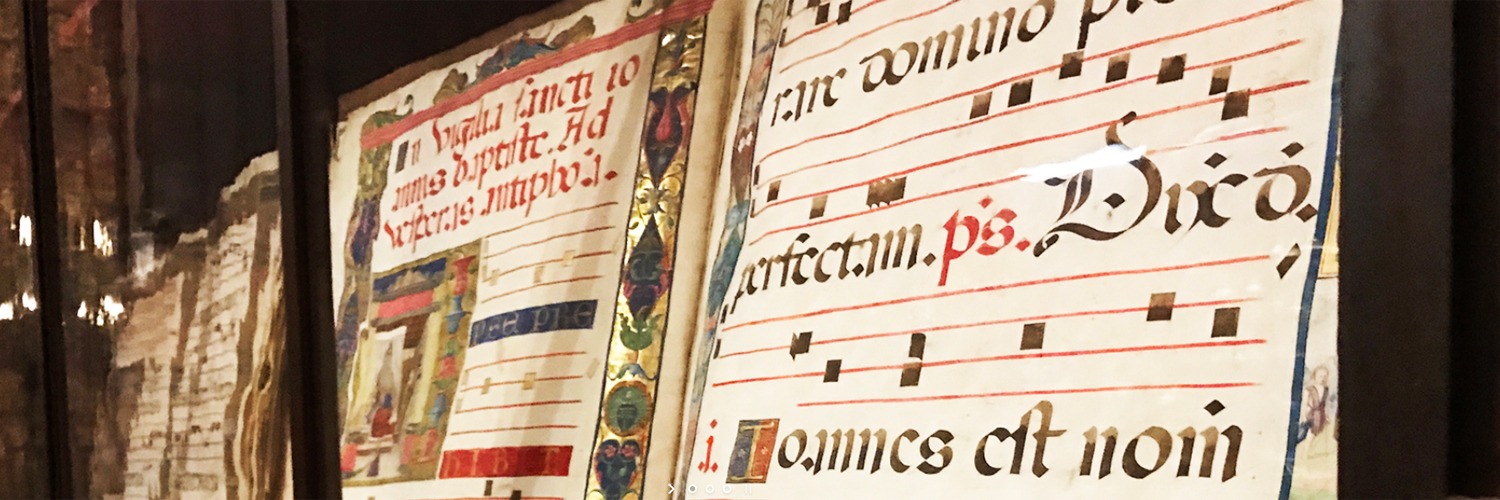 In vigilia sancti io
annis baptiste. Ad
vesperas antipho.a.
PSE PRE
rare domino ple
perfectam. ps. Dix̄ d̄.
i. Ioannes est nom̄